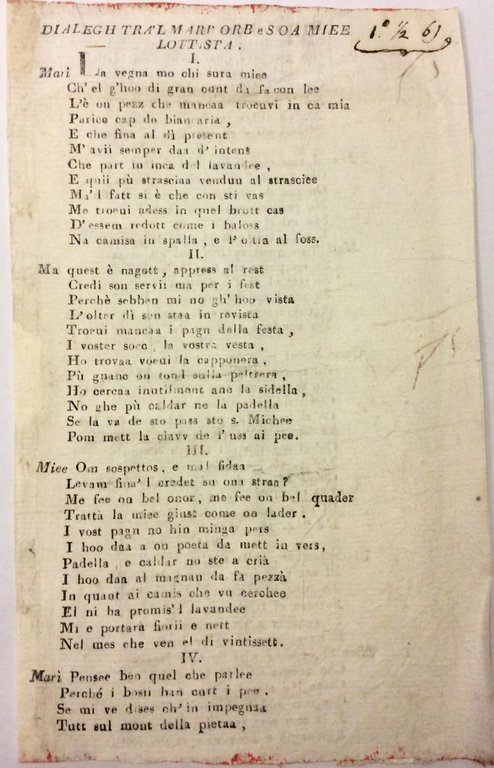 DIALEGH TRA'L MARI' ORB e SOA MIEE
LOTTISTA.
1.° ½ 61
I.
Marì La vegna mo chi sura miee
Ch'el g'hoo di gran cont da fa con lee
L'è on pezz che mancaa troeuvi in ca mia
Parice cap de biancaria,
E che fina al dì present
M'avii semper daa d'intent
Che part in inca del lavandee,
E quii pù strasciaa venduu al strasciee
Ma'l fatt si è che con sti vas
Me troeui adess in quel brutt cas
D'essem redott come i baloss
Na camisa in spalla, e l'oltra al foss.
II.
Ma quest è nagott, appress al rest
Credi son servii ma per i fest
Perchè sebben mi no gh'hoo vista
L'olter dì son staa in revista
Troeui mancaa i pagn della festa,
I voster socc, la vostra vesta,
Ho trovaa voeui la capponera,
Pù gnanc on tond sulla peltrera,
Ho cercaa inutilment anc la sidella,
No ghe pù caldar ne la padella
Se la va de sto pass sto s. Michee
Pom mett la ciavv de l'uss ai pee.
III.
Miee Om sospettos, e mal fidaa
Levam fina'l credet su ona straa?
Me fee on bel onor, me fee on bel quader
Trattà la miee giust come oo lader.
I vost pagn no hin minga pers
I hoo daa a on poeta da mett in vers,
Padella, e caldar no ste a crià
I hoo daa al magnau da fa pezzà
In quant ai camis che vu cerchee
El ni ha promis'l lavandee
Mi e portarà fiorii e nett
Nel mes che ven el di vintissett.
IV.
Marì Pensee ben quel che parlee
Perché i bosii han curt i pee.
Se mi ve dises ch'in impegnaa
Tutt sul mont della pietaa,